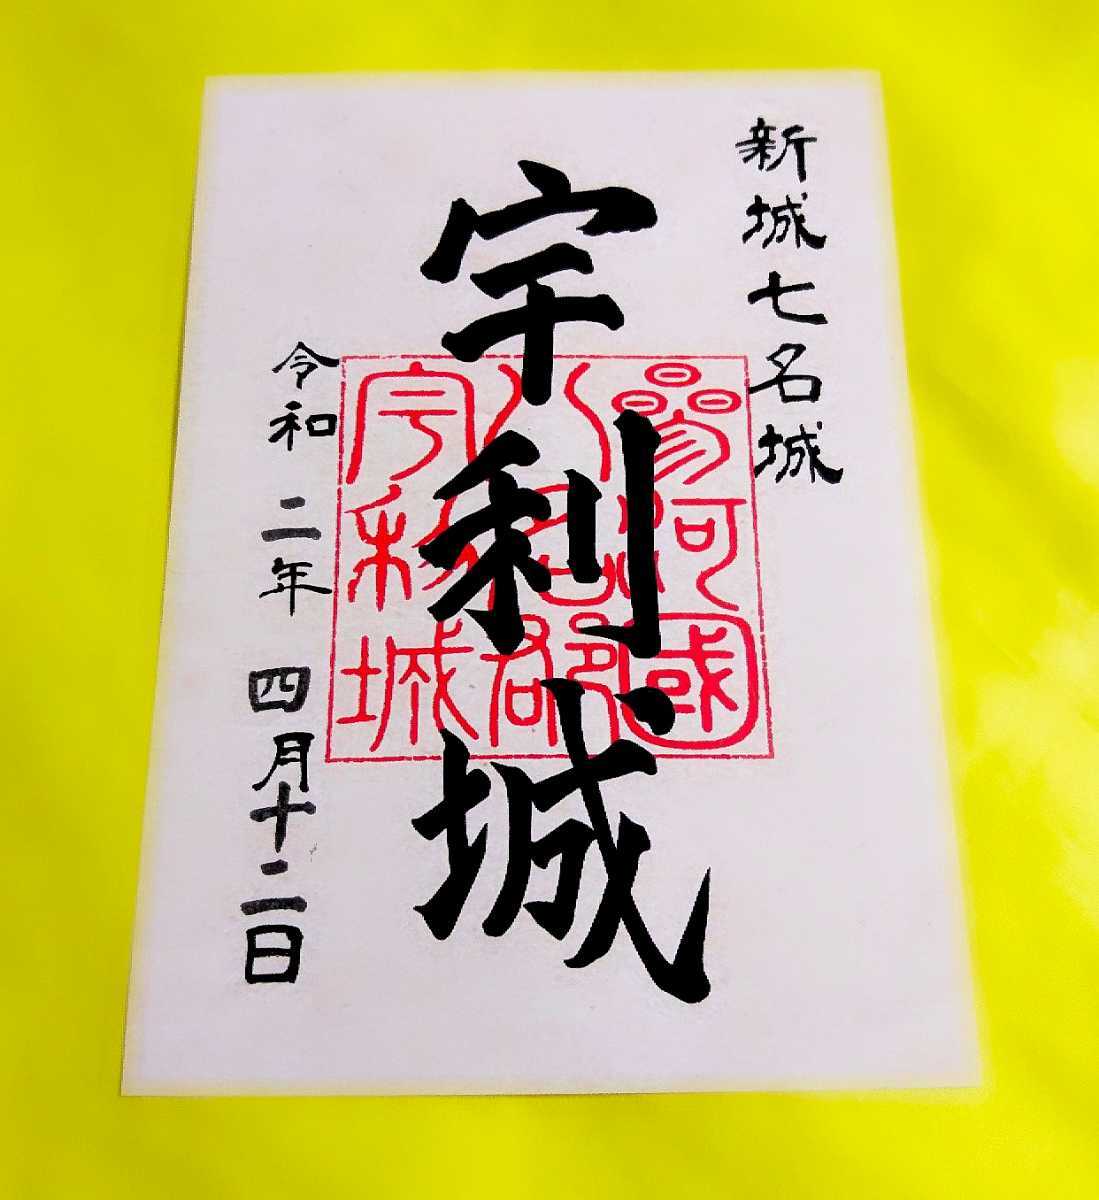 新城七名城
宇利城
参河國
八名郡
宇利城
令和 二年 四月十二日